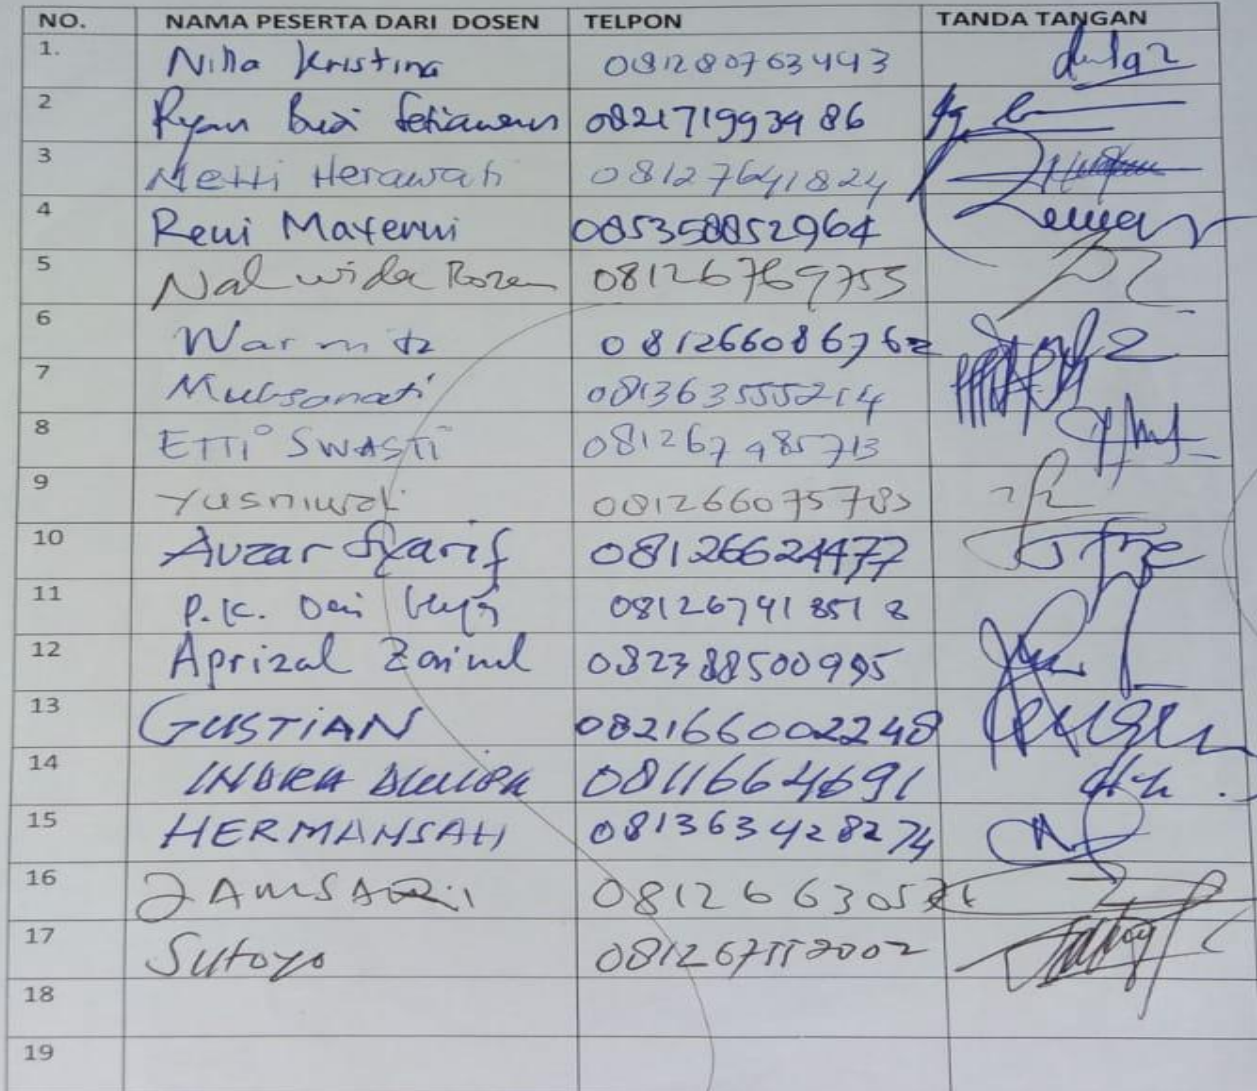 NO. NAMA PESERTA DARI DOSEN TELPON TANDA TANGAN
1. Nilla Kristina 081280763443
2 Ryan Budi Setiawan 082171993486
3 Netti Herawati 08127641824
4 Reni Mayerni 085358852964
5 Nalwida Rozen 08126769755
6 Warnita 081266086762
7 Muhsanati 081363555214
8 ETTI SWASTI 081267485713
9 Yusniwati
10 Auzar Syarif 08126624477
11 P.K. Dewi
12 Aprizal Zainal 082388500995
13 GUSTIAN 082166002248
14 INDRA DWIPA 0811664691
15 HERMANSAH 081363428274
16 JAMSARI
17 Sutoyo 081267552002
18
19